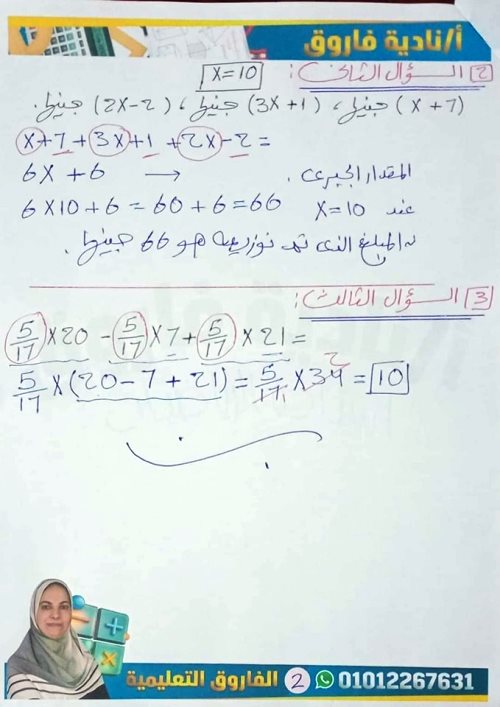 أ/نادية فاروق
2 السؤال الثانى : X=10
(X+7) جنيها، (3X+1) جنيها، (2X-2) جنيها.
X+7+3X+1+2X-2=
6X+6 → المقدار الجبرى .
6X10+6=60+6=66 عند X=10
∴ المبلغ الذى تم توزيعه هو 66 جنيها.
3 السؤال الثالث :
5/17 X20 - 5/17 X7+ 5/17 X21=
5/17 X(20-7+21)= 5/17 X34 2 = 10
الفاروق التعليمية 2 01012267631